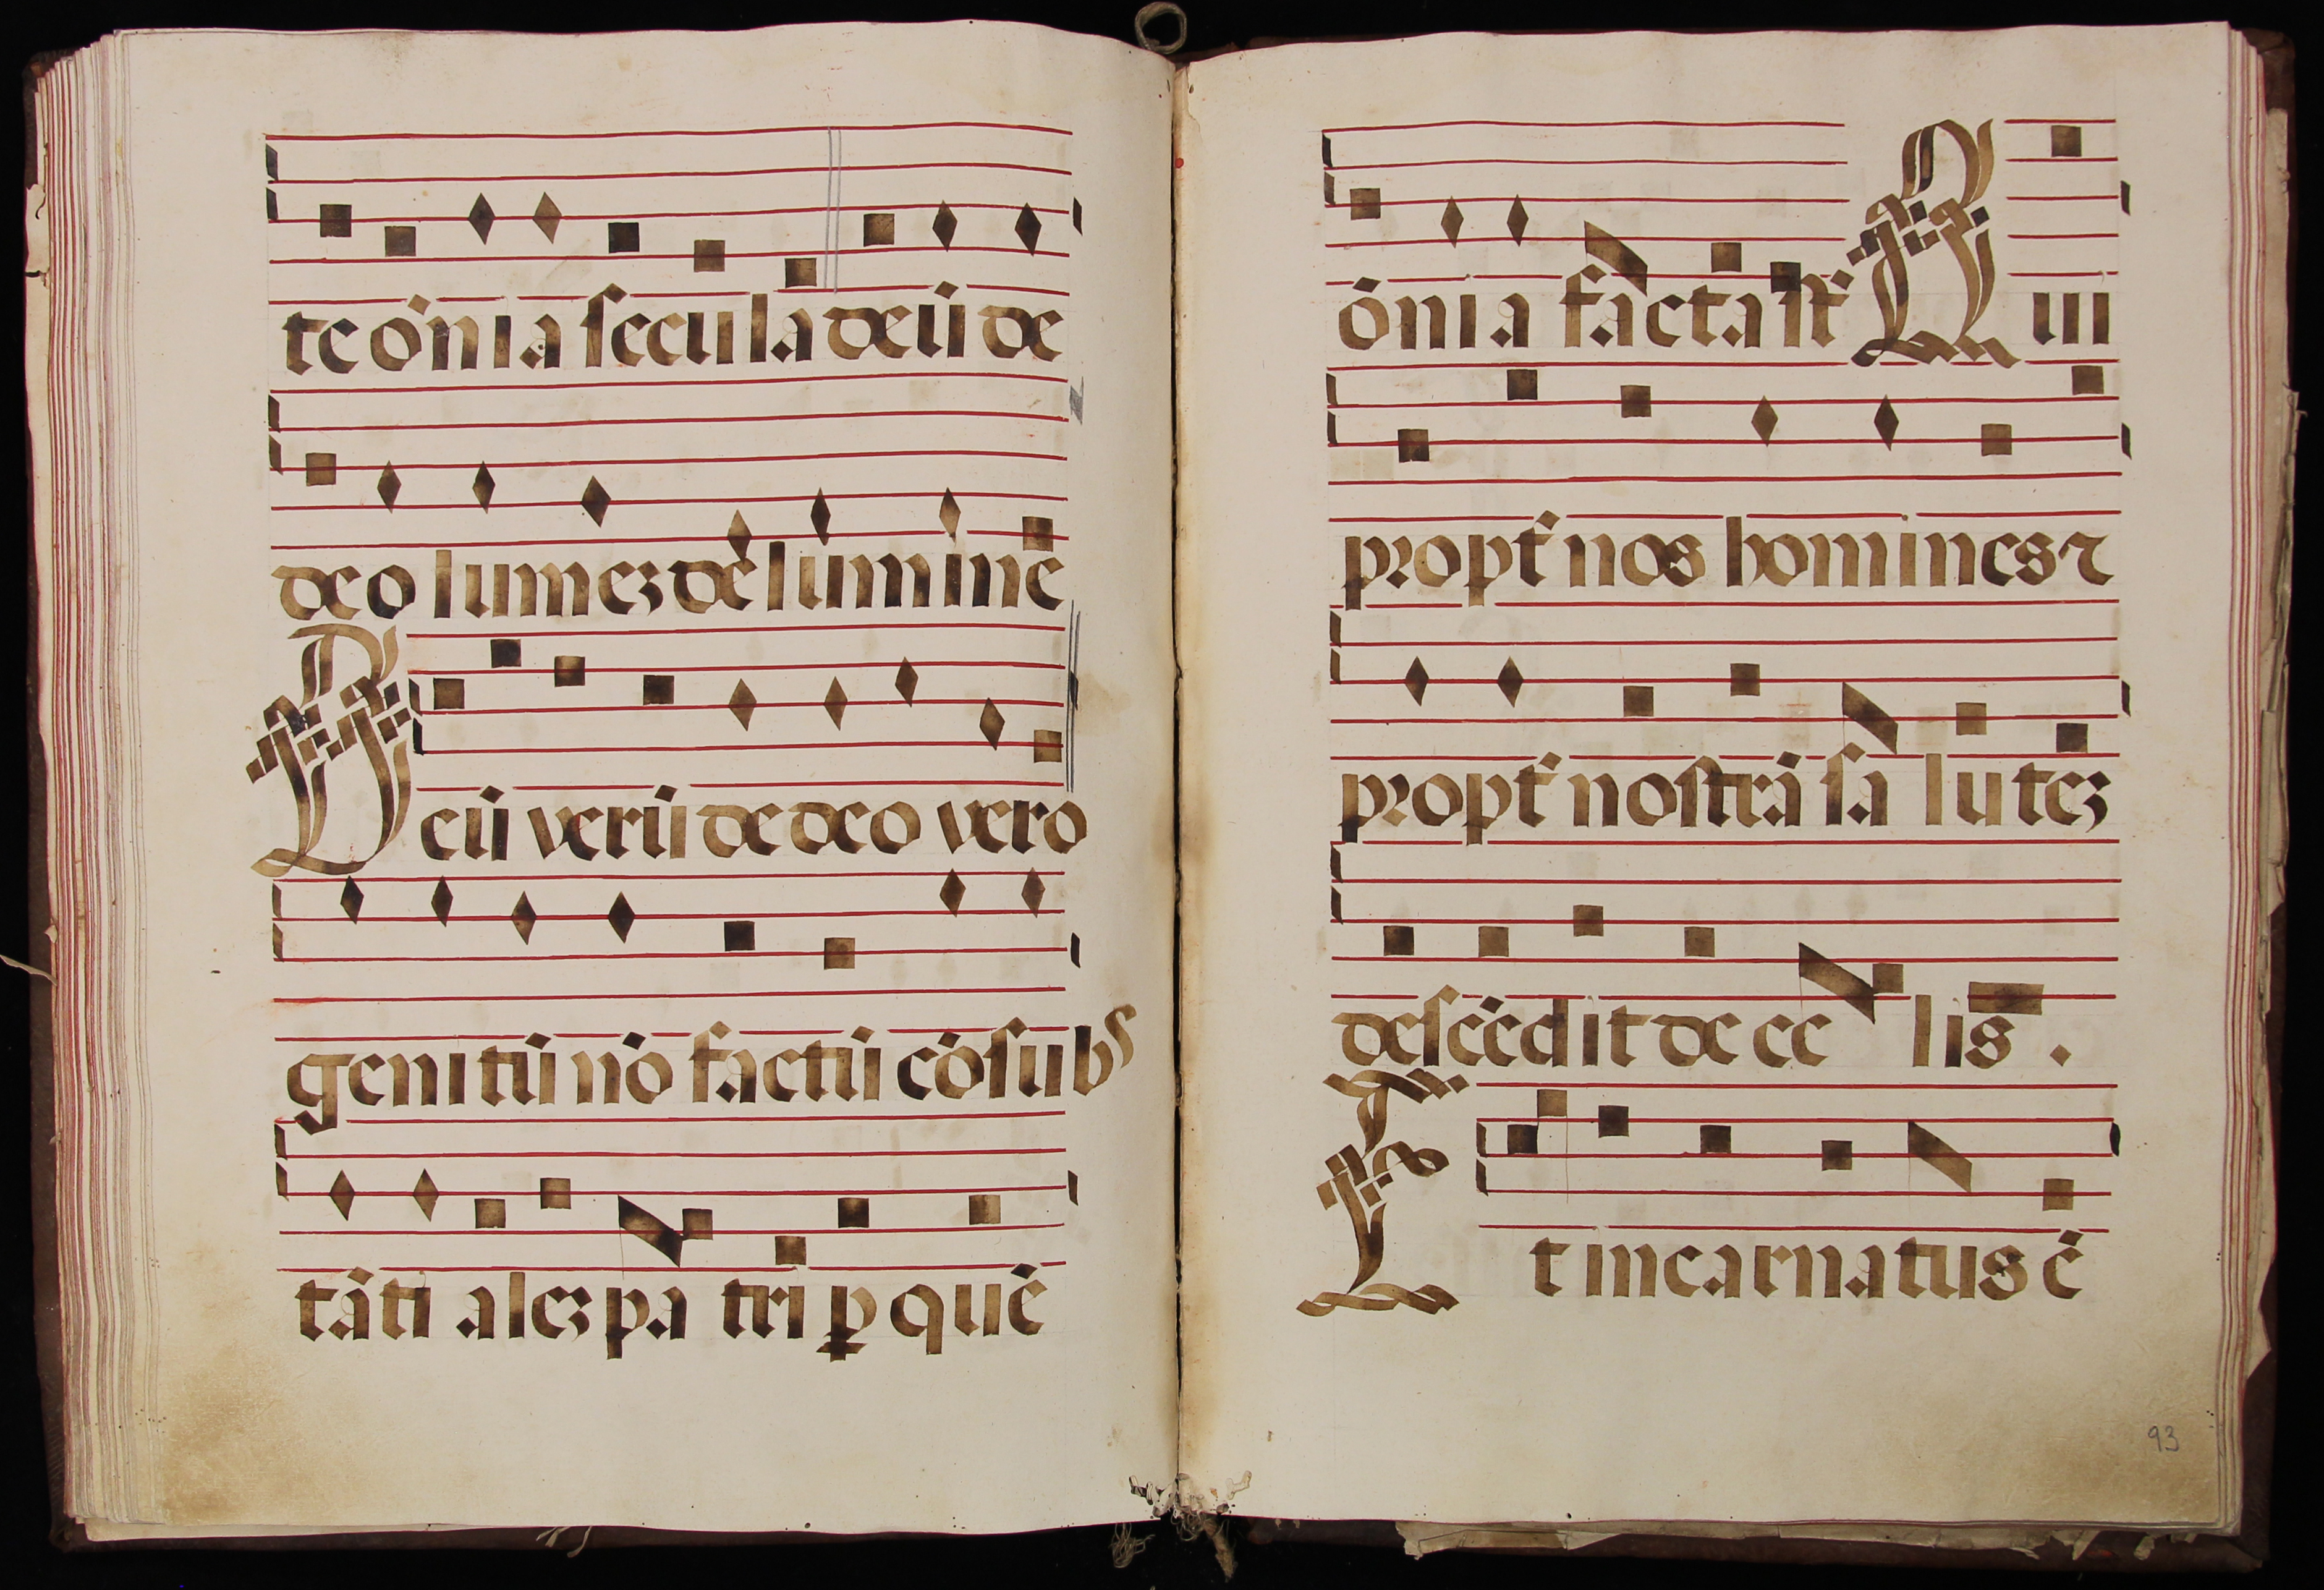 te õnia secula deũ de
deo lumeʒ de lumine
Deũ verũ de deo vero
genitũ nõ factũ cõsubs
tãti aleʒ pa tri ꝑ quẽ
õnia facta st̃ Qui
propt̃ nos homines ⁊
propt̃ nostrã sa luteʒ
descẽdit de ce lis .
Et incarnatus ẽ
93